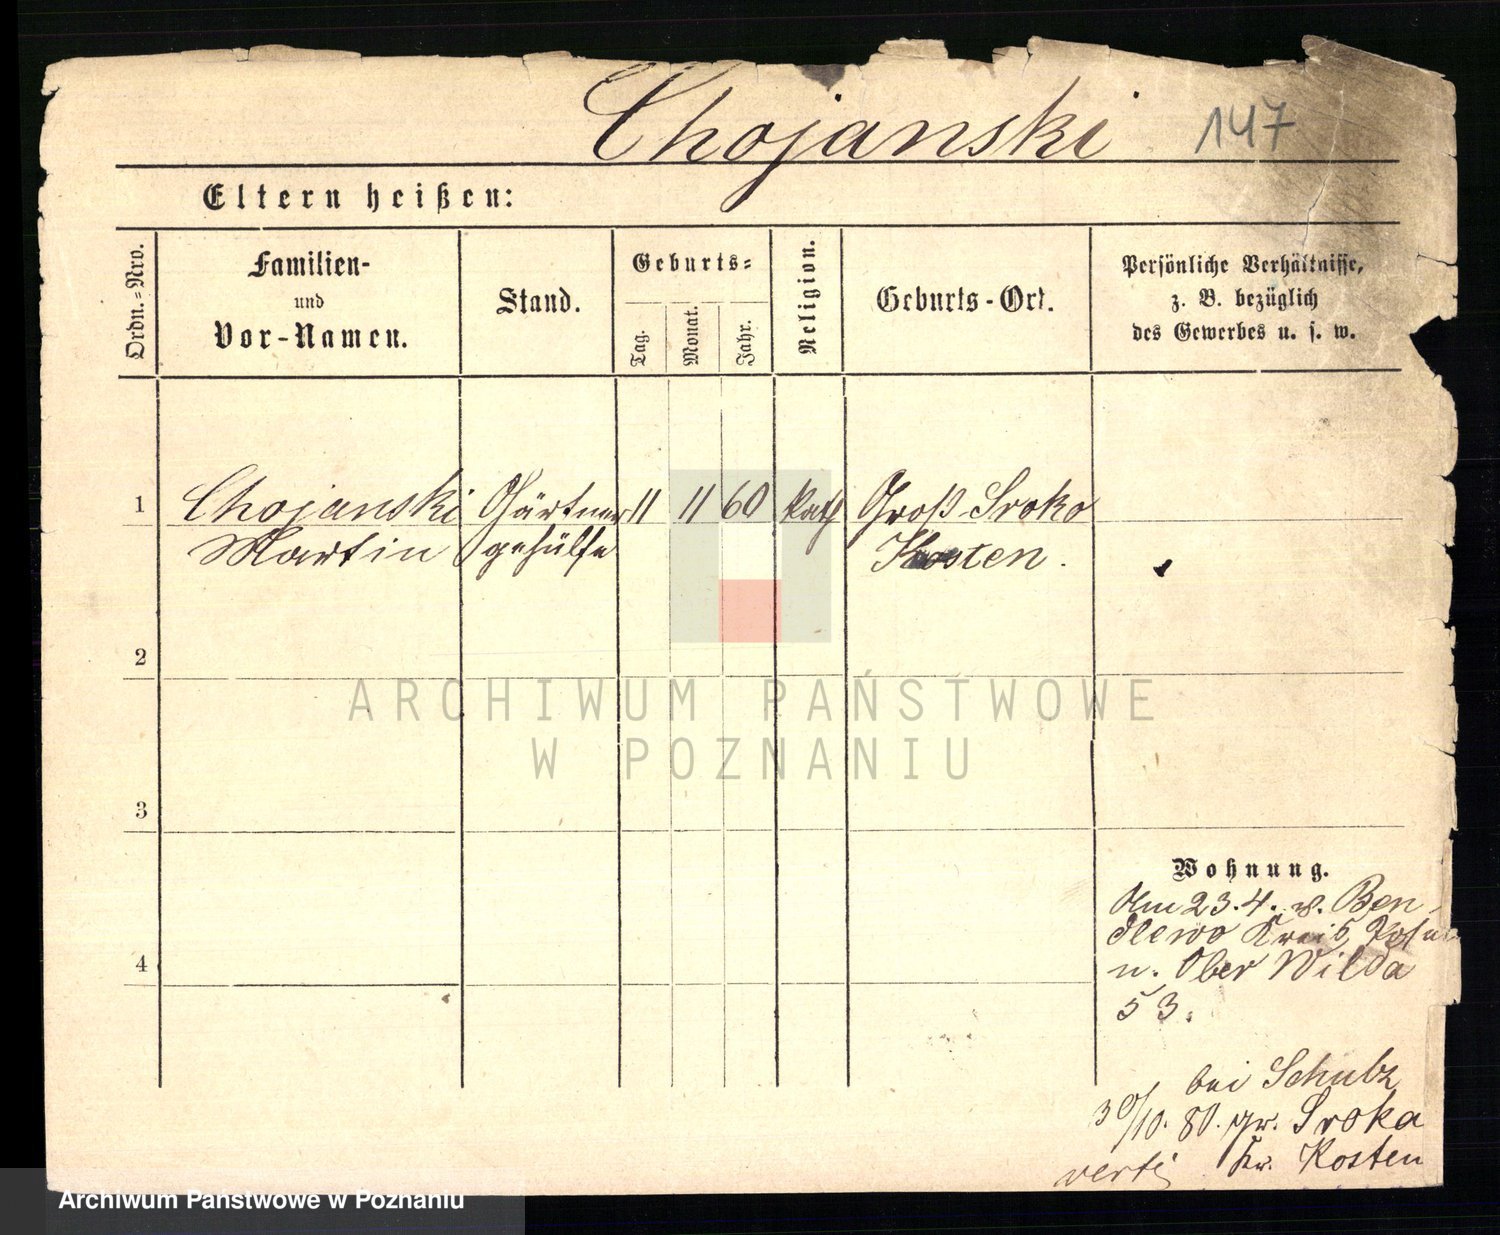 Chojanski 147
Eltern heißen:
Ordn.=Nro.
Familien-
und
Vor-Namen.
Stand.
Geburts=
Tag.
Monat.
Jahr.
Religion.
Geburts-Ort.
Persönliche Verhältnisse,
z. B. bezüglich
des Gewerbes u. s. w.
1 Chojanski Gärtner 11 11 60 kath Groß Sroko
Martin gehülfe Kosten.
2
ARCHIWUM PAŃSTWOWE
W POZNANIU
3
Wohnung.
Am 23.4. v. Ben-
dlewo Kreis Posen
n. Ober Wilda
53.
4
bei Schulz
30/10. 80. gr. Sroka
verti Kr. Kosten
Archiwum Państwowe w Poznaniu